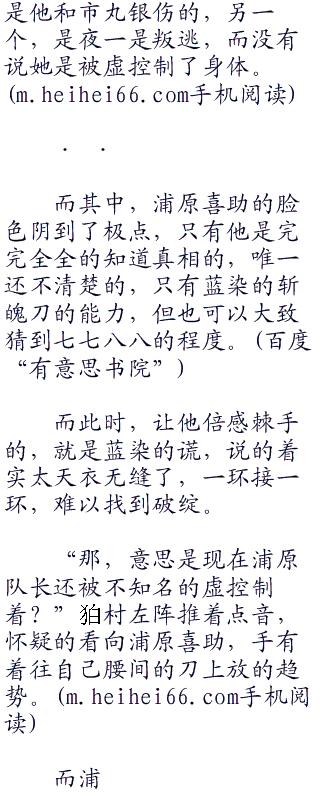 是他和市丸银伤的，另一
个，是夜一是叛逃，而没有
说她是被虚控制了身体。
(m.heihei66.com手机阅读)
．．
而其中，浦原喜助的脸
色阴到了极点，只有他是完
完全全的知道真相的，唯一
还不清楚的，只有蓝染的斩
魄刀的能力，但也可以大致
猜到七七八八的程度。(百度
“有意思书院”)
而此时，让他倍感棘手
的，就是蓝染的谎，说的着
实太天衣无缝了，一环接一
环，难以找到破绽。
“那，意思是现在浦原
队长还被不知名的虚控制
着？”狛村左阵推着点音，
怀疑的看向浦原喜助，手有
着往自己腰间的刀上放的趋
势。(m.heihei66.com手机阅
读)
而浦